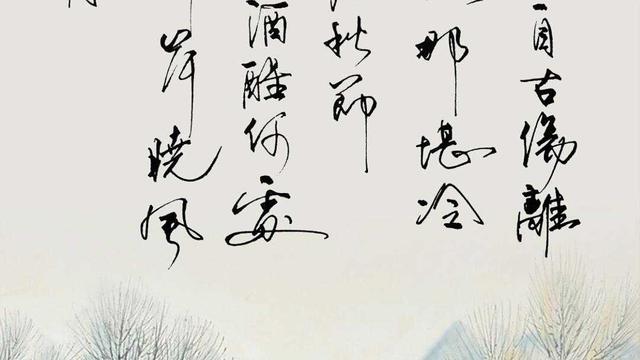 自古傷離
那堪冷
秋節
酒醒何處
岸曉風